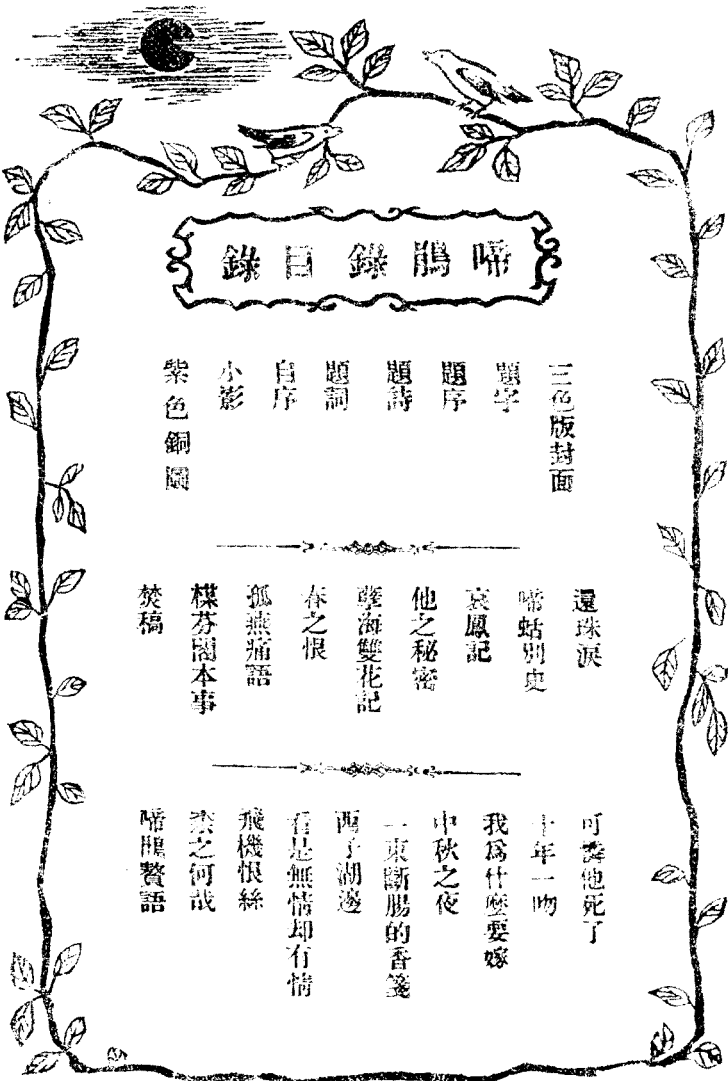 啼鵑錄目錄
三色版封面
題字
題序
題詩
題詞
自序
小影
紫色銅圖
還珠淚
啼蛄別史
哀鳳記
他之秘密
孽海雙花記
春之恨
孤燕痛語
楪芬閣本事
焚稿
可憐他死了
十年一吻
我爲什麽要嫁
中秋之夜
一束斷腸的香箋
西子湖邊
看是無情却有情
飛機恨絲
柰之何哉
啼鵑贅語